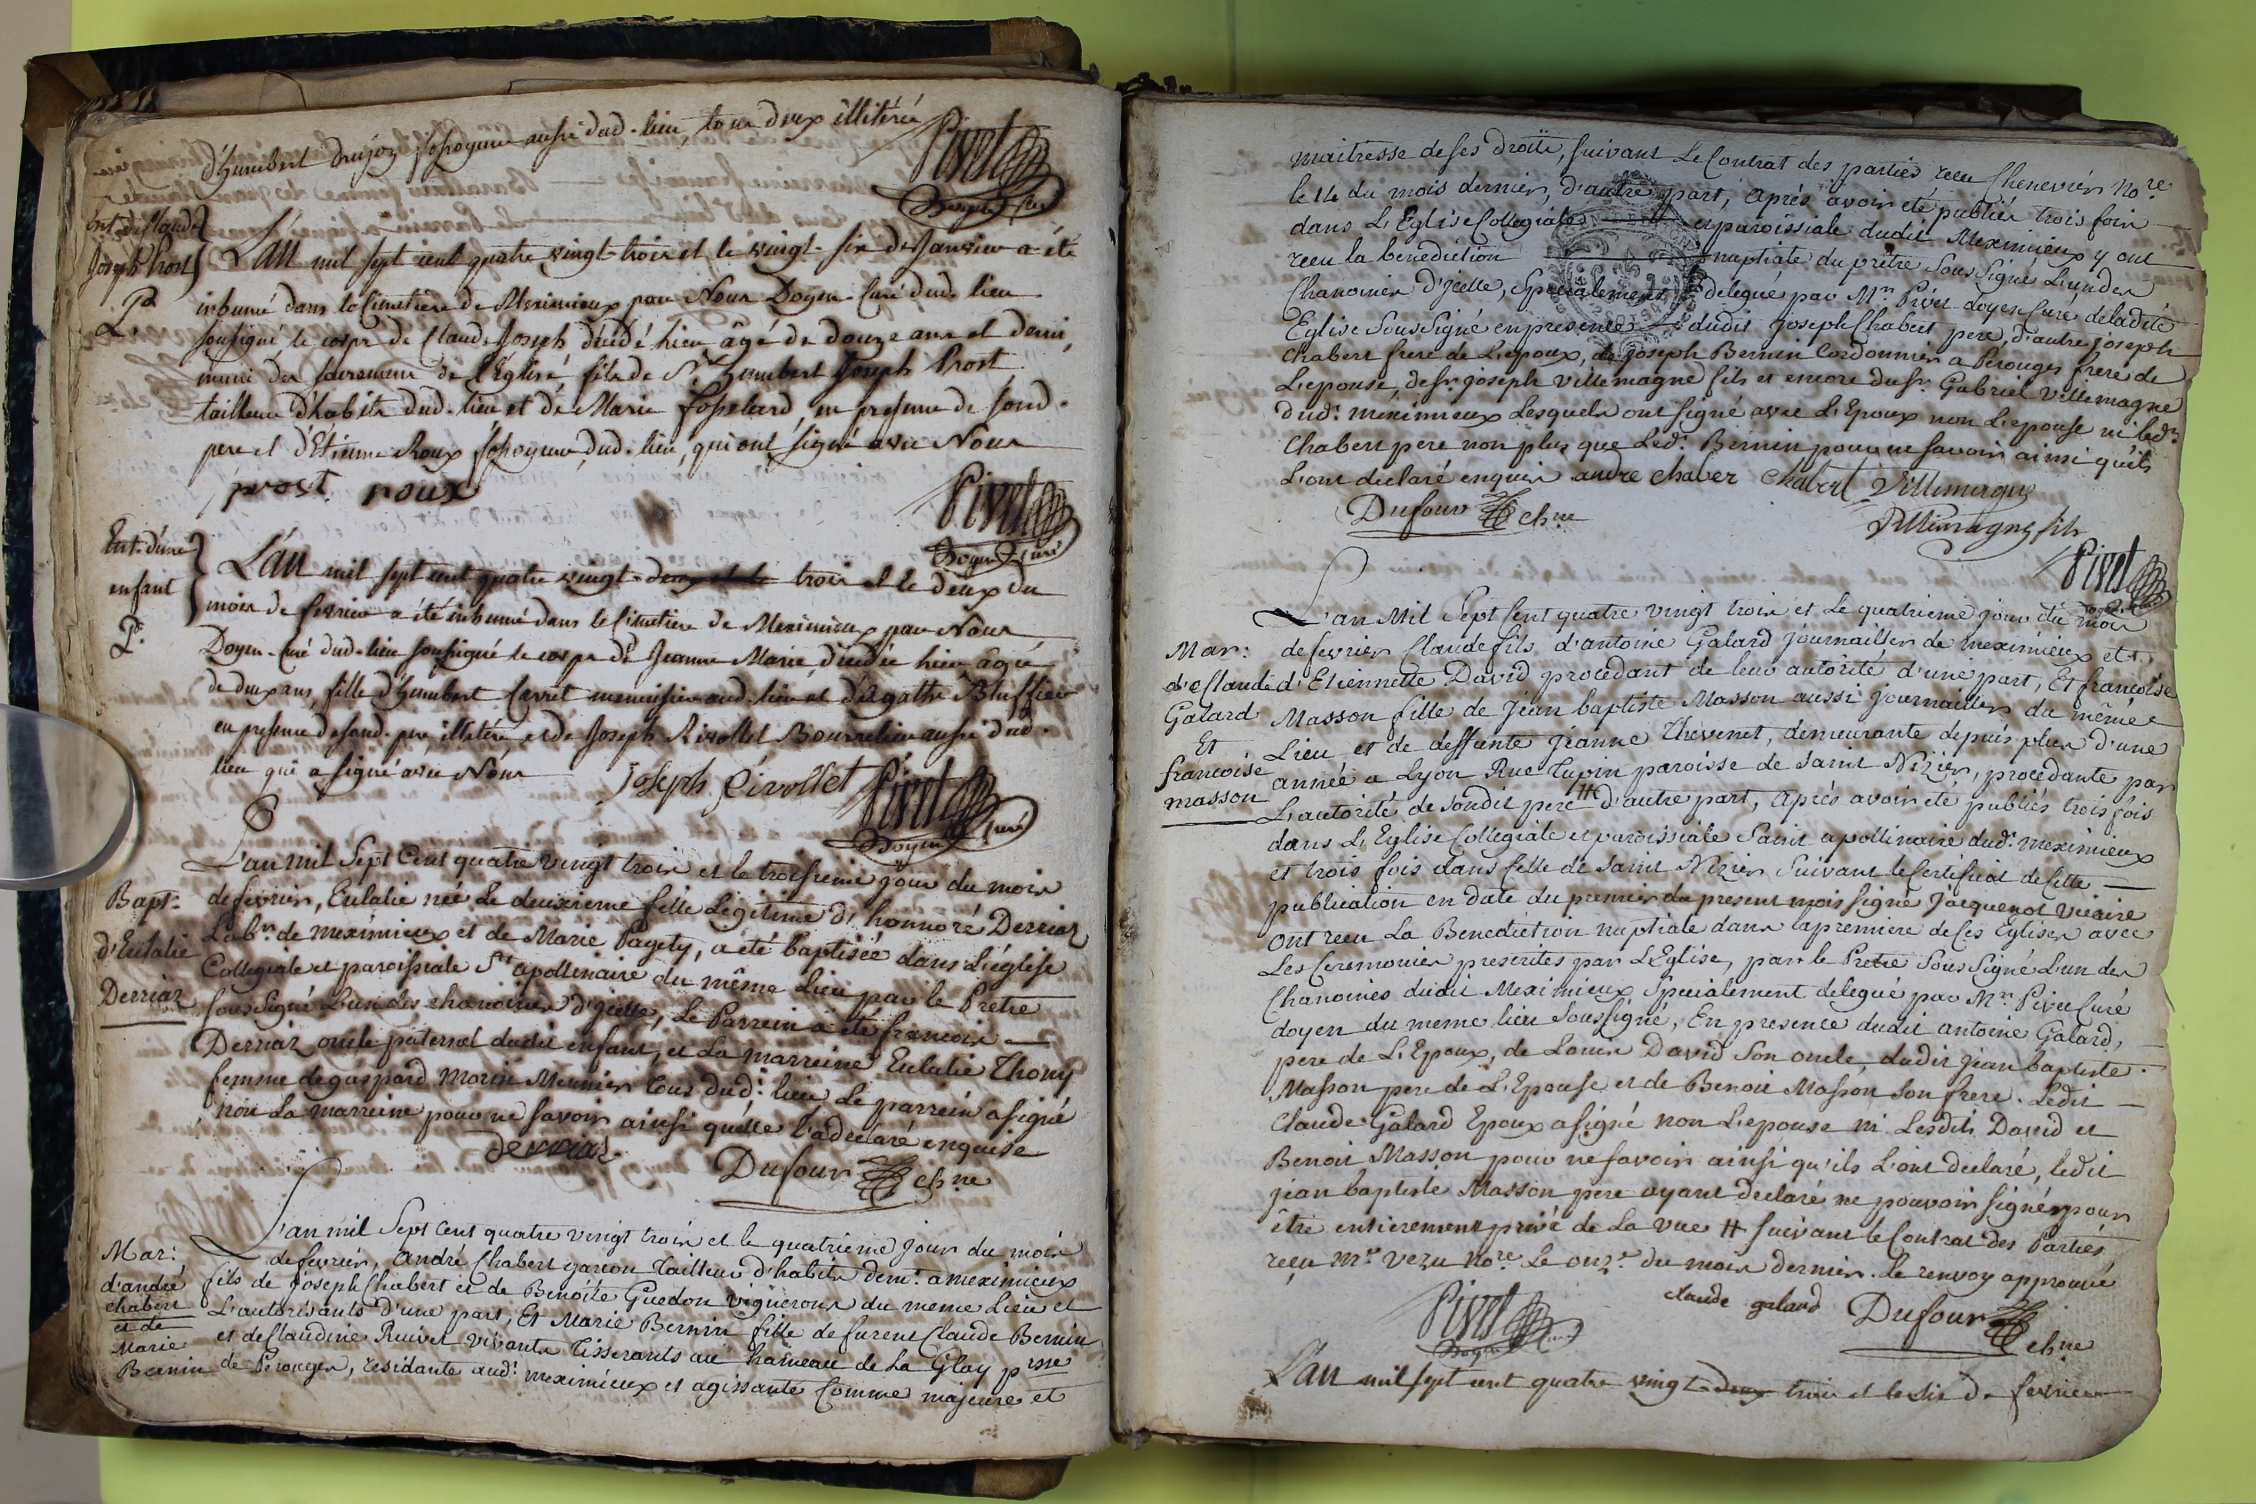 d'humbert drujon fossoyeur aussi dud. lieu, tous deux illitérés
Pivet
Doyen Curé
Ent. de Claude
Joseph Prost
Pd.
L'an mil sept cent quatre vingt-trois et le vingt-six de Janvier a été
inhumé dans le Cimetiere de Meximieux par Nous Doyen-Curé dud. lieu
soussigné le corps de Claude Joseph décédé hier âgé de douze ans et demi,
muni des sacremens de l'Eglise fils de Sr. humbert Joseph Prost
tailleur d'habits dud. lieu et de Marie fosselard, en presence de sond.
pere et d'Etienne Roux fossoyeur dud. lieu, qui ont signé avec Nous
prost roux
Pivet
Doyen Curé
Ent. d'une
enfant
P.
L'an mil sept cent quatre vingt-deux et le trois et le deux du
mois de fevrier a été inhumé dans le Cimetiere de Meximieux par Nous
Doyen-Curé dud. lieu soussigné le corps de Jeanne Marie décédée hier âgée
de deux ans, fille d'humbert Carret menuisier aud. lieu et d'Agathe Bluffier
en presence de sond. pere, illitéré, et de Joseph Rivollet Bourrelier aussi dud.
lieu qui a signé avec Nous
Joseph Rivollet Pivet
Doyen Curé
L'an mil Sept Cent quatre vingt trois et le troisieme jour du mois
Bapt:
d'Eulalie
Derriaz
de fevrier, Eulalie née Le deuxieme fille Légitime d'honnoré Derriaz
Labr. de meximieux et de Marie Pagety, a été baptisée dans L'église
Collegiale et paroissiale St. apollinaire du même Lieu par le Prêtre
sousSigné L'un des chanoines d'icelle, Le Parrein a été francois
Derriaz oncle paternel dudit enfant, et La marreine Eulalie Thony
femme de gaspard Morin Meunier tous dud. lieu, Le parrein a signé
non La marreine pour ne savoir ainsi quelle l'a declaré enquise
derriaz
Dufour chne
L'an mil Sept Cent quatre vingt trois et le quatrieme jour du mois
Mar:
d'andré
chabert
et de
Marie
Bernin
de fevrier, André Chabert garcon Tailleur d'habits demt. a meximieux
fils de joseph Chabert et de Benoite Guedon vignerons du meme Lieu et
L'autorisants d'une part, Et Marie Bernin fille de furent Claude Bernin
et de Claudine Ruivet vivants Tisserants au hameau de La Glay psse
de Perouges, residante aud. meximieux et agissante Comme majeure et
maitresse de ses droits, suivant Le Contrat des parties recu Chenevier nore
le 14 du mois dernier, d'autre part, Aprés avoir été publiés trois fois
dans L'Eglise Collegiale et paroissiale dudit Meximieux y ont
recu la benediction nuptiale du prêtre SousSigné L'un des
Chanoines d'icelle, Specialement delegué par Mr. Pivet doyen Curé de ladite
Eglise Sous Signé en presence dudit Joseph Chabert pere, d'autre joseph
Chabert frere de L'epoux, de joseph Bernin Cordonnier a Perouges frere de
L'epouse, de sr. joseph Villemagne fils et encore du sr. Gabriel Villemagne
dud. meximieux Lesquels ont signé avec L'Epoux non L'epouse ni led.
Chabert pere non plus que Led. Bernin pour ne savoir ainsi qu'ils
L'ont declaré enquis andre chaber chabert Villemagne
Dufour chne
Villemagne fils
Pivet
Doyen
L'an Mil Sept Cent quatre vingt trois et Le quatrieme jour du mois
Mar:
de Claude
Galard
Et
francoise
masson
de fevrier Claude fils d'antoine Galard journaillier de meximieux et
d'Etiennette David procedant de leur autorité d'une part, Et francoise
Masson fille de jean baptiste Masson aussi journaillier du même
Lieu et de deffunte Jeanne Thevenet, demeurante depuis plus d'une
année a Lyon Rue Tupin paroisse de Saint Nizier, procedante par
L'autorité de sondit pere # d'autre part, Aprés avoir été publiés trois fois
dans L'Eglise Collegiale et paroissiale Saint apollinaire dud. meximieux
et trois fois dans Celle de Saint Nizier Suivant le Certificat de Cette
publication en date du premier du present mois signé Jacquenot vicaire
ont recu La Benediction nuptiale dans la premiere de Ces Eglises avec
Les Ceremonies prescrites par L'Eglise, par le Pretre SousSigné L'un des
Chanoines dudit Meximieux Specialement delegué par Mr. Pivet Curé
doyen du meme lieu Soussigné, En presence dudit antoine Galard,
pere de L'Epoux, de Louis David Son oncle, dudit jean baptiste
Masson pere de L'Epouse et de Benoit Masson son frere. Ledit
Claude Galard Epoux a signé non L'epouse ni Lesdits David et
Benoit Masson pour ne savoir ainsi qu'ils L'ont declaré, ledit
jean baptiste Masson pere ayant declaré ne pouvoir signer pour
être entierement privé de La vue # suivant le Contrat des Parties
reçu Me. Vezu nore. Le onze du mois dernier. Le renvoy approuvé
claude galard Dufour chne
Pivet
Doyen Curé
L'an mil sept cent quatre vingt-deux trois et le six de fevrier